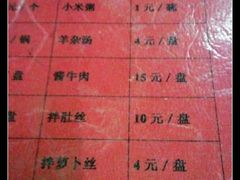 元/个 小米粥 1元/碗
/锅 羊杂汤 4元/盘
盘 酱牛肉 15元/盘
/盘 拌肚丝 10元/盘
拌萝卜丝 4元/盘